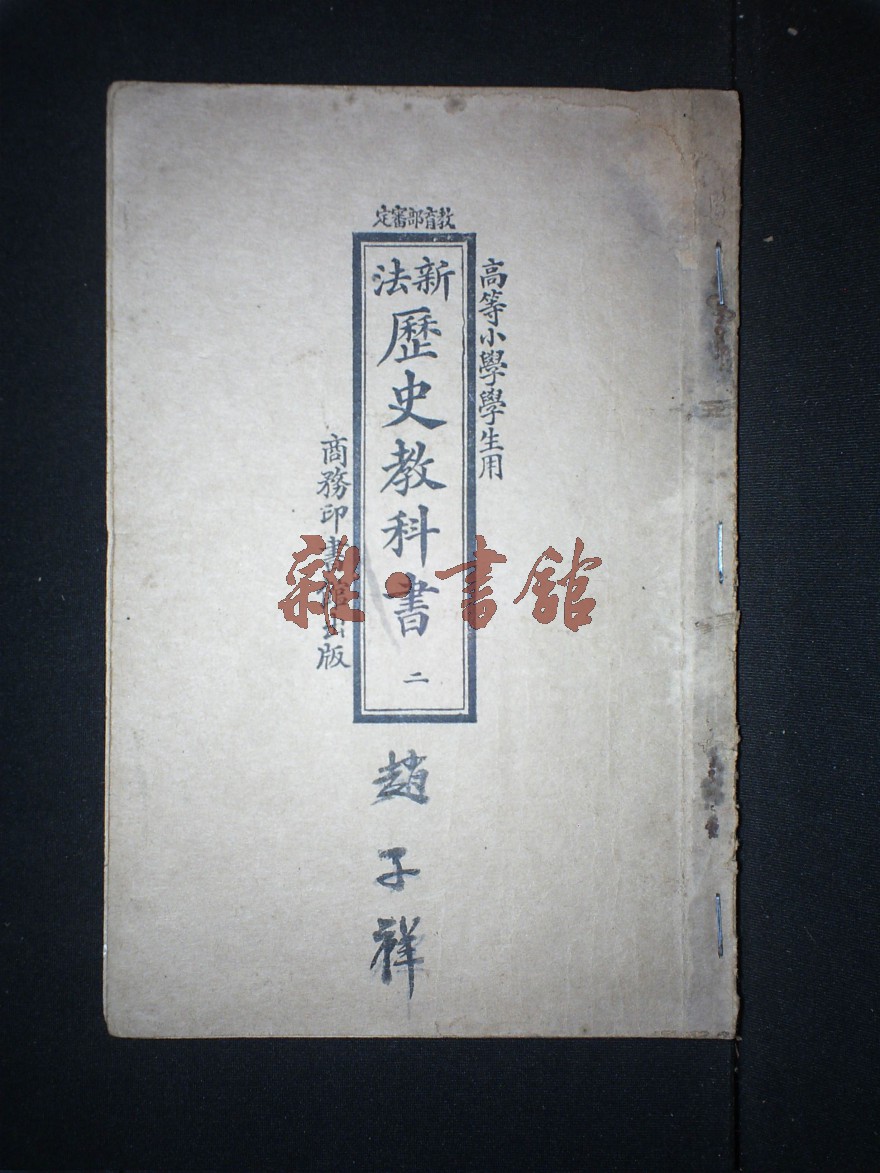 教育部審定
高等小學學生用
新法
歷史教科書 二
商務印書館出版
趙子祥
雜·書舘